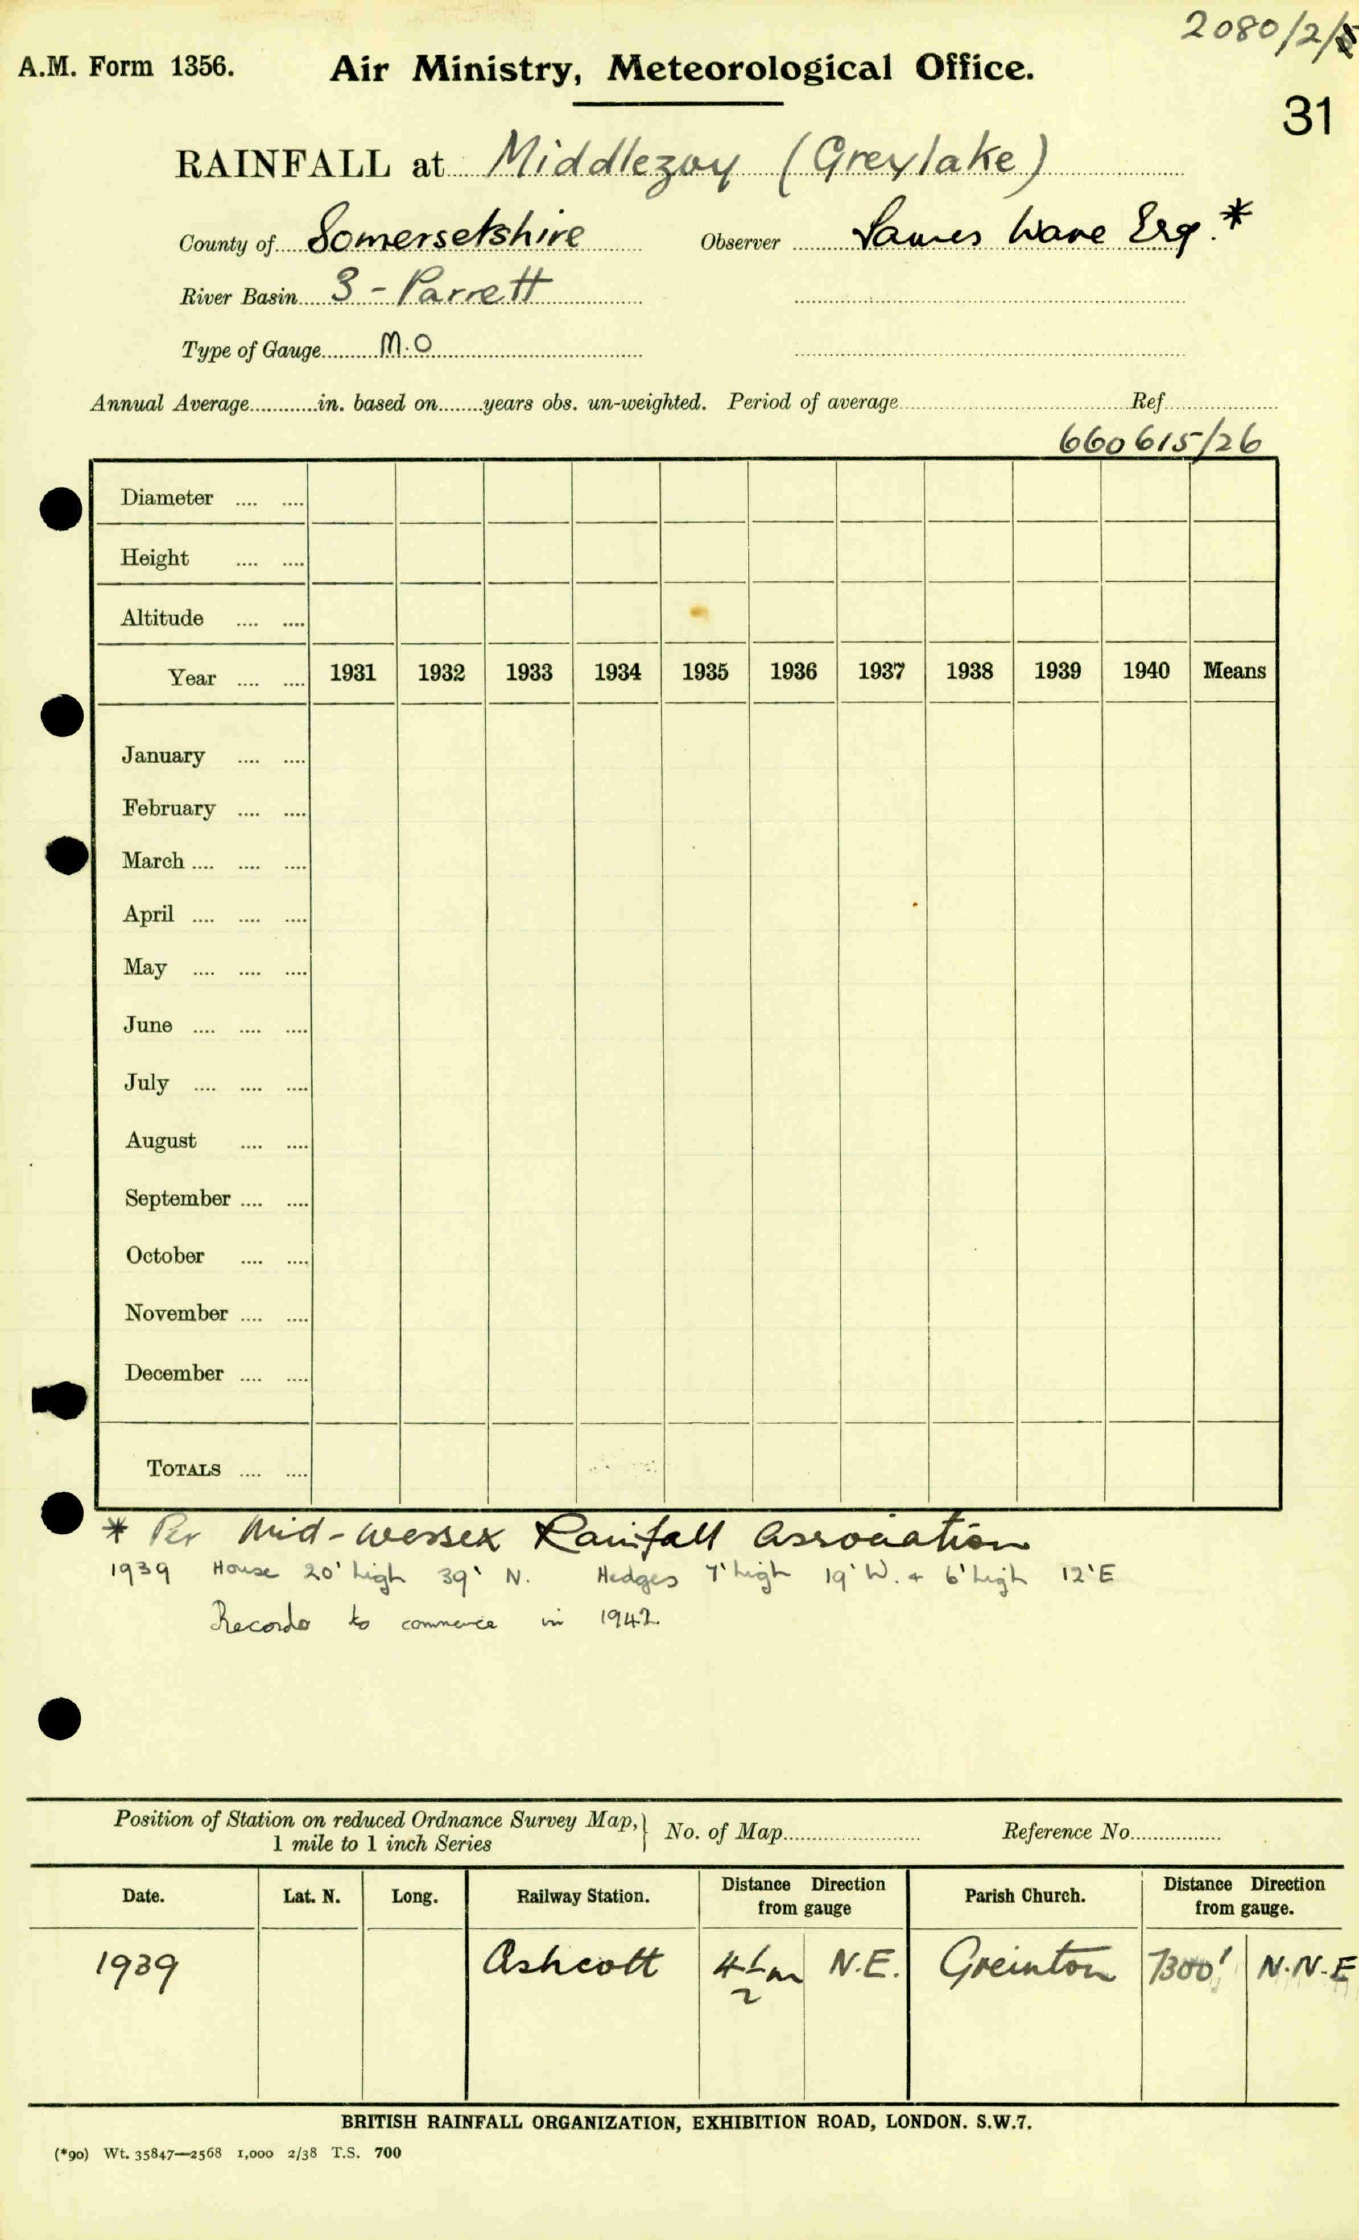 2080/2/
A.M. Form 1356. Air Ministry, Meteorological Office.
31
RAINFALL at Middlezoy (Greylake)
County of Somersetshire Observer James Ware Esq. *
River Basin 3 - Parrett
Type of Gauge M.O
Annual Average in. based on years obs. un-weighted. Period of average Ref
660615/26
Diameter
Height
Altitude
Year 1931 1932 1933 1934 1935 1936 1937 1938 1939 1940 Means
January
February
March
April
May
June
July
August
September
October
November
December
TOTALS
* Per Mid-Wessex Rainfall Association
1939 House 20' high 39' N. Hedges 7' high 19' W. + 6' high 12' E
Records to commence in 1942
Position of Station on reduced Ordnance Survey Map, } No. of Map Reference No.
1 mile to 1 inch Series
Date. Lat. N. Long. Railway Station. Distance Direction from gauge Parish Church. Distance Direction from gauge.
1939 Ashcott 4½m N.E. Greinton 7300' N.N.E
BRITISH RAINFALL ORGANIZATION, EXHIBITION ROAD, LONDON. S.W.7.
(*90) Wt. 35847—2568 1,000 2/38 T.S. 700